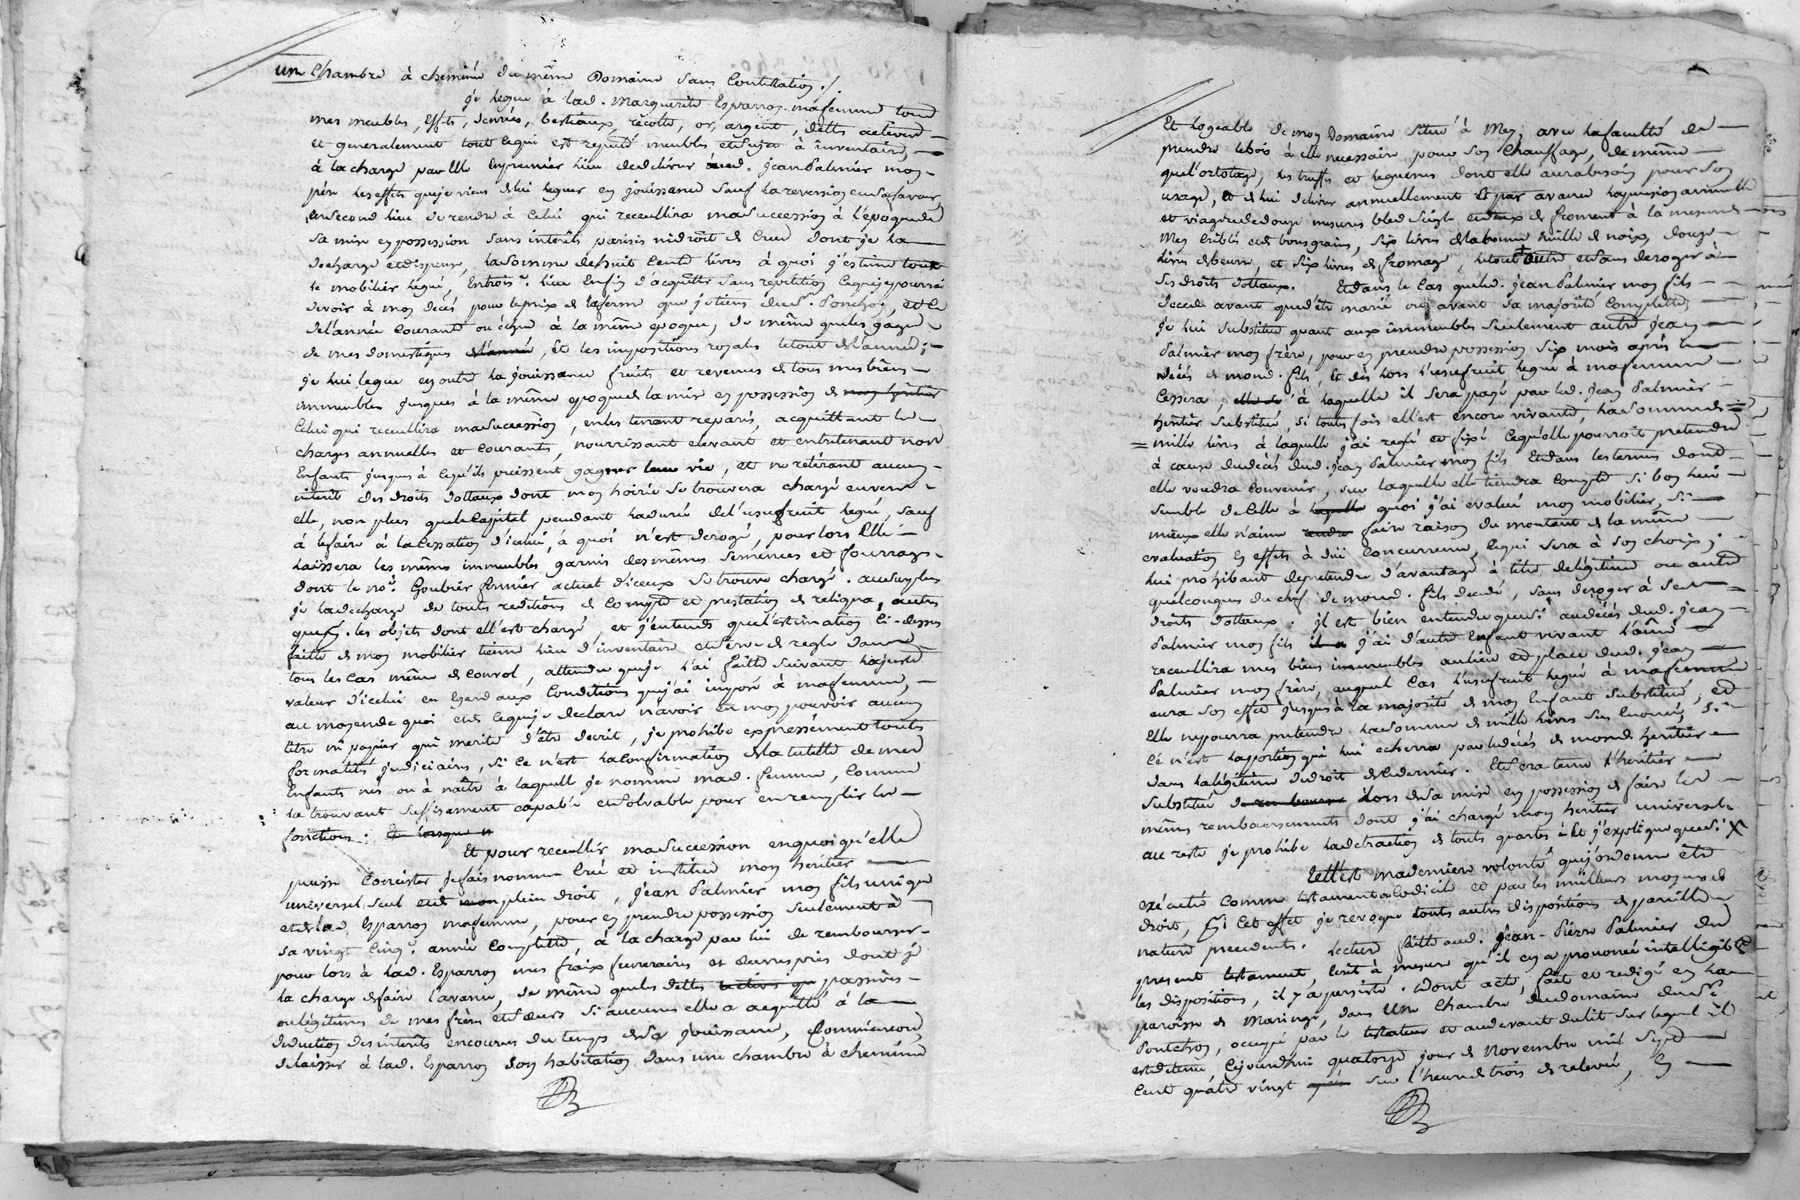 une Chambre à cheminée du même Domaine sans Contestation ./.
je legue à lad. Marguerite Esparron ma femme tous
mes meubles, effets, denrées, bestiaux, récolte, or, argent, dettes actives
et generalement tout ce qui est reputé meubles et sujet à inventaire,
à la charge par elle en premier lieu de delivrer aud. Jean Palmier mon
père les effets que je viens de lui leguer en jouissance sauf la reversion en sa faveur,
en second lieu de rendre à celui qui recueillira ma succession à l'epoque de
sa mise en possession sans interêts parisis ni droit de crue dont je la
decharge et dispense, la somme de huit cents livres à quoi j'estime tout
le mobilier legué, Entrois.e lieu enfin d'acquitter sans repetition ce que je pourrai
devoir à mon decès pour le prix de la ferme que je tiens du Sr. Ponchon, et ce
de l'année courante ou echue à la même epoque, de même que les gages
de mes domestiques de l'année, et les impositions royales le tout de l'année;
je lui legue en outre la jouissance fruits et revenus de tous mes biens
immeubles jusques à la même epoque de la mise en possession de mon heritier
celui qui recueillira ma succession, en les tenant reparés, acquittant les
charges annuelles et courantes, nourrissant elevant et entretenant nos
Enfants jusques à ce qu'ils puissent gagner leur vie, et ne retirant aucun
interêt des droits dottaux dont mon hoirie se trouvera chargé envers
elle, non plus que le capital pendant la durée de l'usufruit legué, sauf
à le faire à la cessation d'icelui, à quoi n'est derogé, pour lors elle
laissera les mêmes immeubles garnis des mêmes semences et fourrages
dont le no.é Goubier fermier actuel d'iceux se trouve chargé. au surplus
je la decharge de toutes redditions de compte et prestation de reliqua, autres
que les objets dont elle est chargé, et j'entends que l'estimation ci-dessus
faitte de mon mobilier tienne lieu d'inventaire et serve de regle dans
tous les cas même de convol, attendu que je l'ai faitte suivant la juste
valeur d'icelui eu egard aux conditions que j'ai imposé à ma femme,
au moyen de quoi et de ce que je declare n'avoir en mon pouvoir aucun
titre ni papier qui merite d'être decrit, je prohibe expressément toutes
formalités judiciaires, si ce n'est la confirmation de la tutelle de mes
Enfants nés ou à naître à laquelle je nomme mad. femme, comme
la trouvant suffisement capable et solvable pour en remplir les
fonctions. Et lorsque
Et pour recueillir ma succession en quoi qu'elle
puisse consister je fais nomme crée et institue mon heritier
universel seul et de mon plein droit, Jean Palmier mon fils unique
et de lad. Esparron ma femme, pour en prendre possession seulement à
sa vingt cinq.e année complette, à la charge par lui de rembourser
pour lors à lad. Esparron mes fraix funeraires et œuvres pies dont je
la charge de faire l'avance, de même que les dettes actives passives
ou légitimes de mes frères et sœurs si aucunes elle a acquitté à la
deduction des interêts encourus du temps de sa jouissance,
delaisser à lad. Esparron son habitation dans une chambre à cheminée
Et logeable de mon Domaine situé à Mey, avec la faculté de
prendre le bois à elle necessaire pour son chauffage, de même
que l'ortolage, les truffes et legumes dont elle aura besoin pour son
usage, et de lui delivrer annuellement et par avance la pension annuelle
et viagere de douze mesures bled seigle et deux de froment à la mesure de
Mey criblés et de bons grains, six livres de la bonne huille de noix, douze
livres de beurre, et six livres de fromage, le tout outre et sans deroger à
ses droits dottaux. Et dans le cas que led. Jean Palmier mon fils
decede avant que d'être marié ou avant sa majorité complette,
je lui substitue quant aux immeubles seulement autre Jean
Palmier mon frère, pour en prendre possession six mois après le
decès de mond. fils, et dès lors l'usufruit legué à ma femme
cessera, elle de à laquelle il sera payé par led. Jean Palmier
heritier substitué, si toutes fois elle est encore vivante, la somme de
mille livres à laquelle j'ai reglé et fixé ce qu'elle pourroit pretendre
à cause du decès dud. Jean Palmier mon fils Et dans les termes dont
elle voudra convenir, sur laquelle elle tiendra compte si bon lui
semble de celle à laquelle quoi j'ai evalué mon mobilier, si
mieux elle n'aime rendre faire raison du montant de la même
evaluation en effets à dui concurrence, ce qui sera à son choix;
lui prohibant de pretendre d'avantage à titre de légitime ou autre
quelconques du chef de mond. fils decedé, sans deroger à ses
droits dottaux. il est bien entendu que si au decès dud. Jean
Palmier mon fils il a j'ai d'autre Enfant vivant l'ainé
recueillira mes biens immeubles au lieu et place dud. Jean
Palmier mon frère, auquel cas l'usufruit legué à ma femme
aura son effet jusques à la majorité de mon Enfant substitué, et
elle ne pourra pretendre la somme de mille livres sus enoncé, si
ce n'est la portion qui lui echerra par le decès de mond. heritier
dans la légitime de droit de ce dernier. Et sera tenu l'heritier
substitué de rembourser lors de sa mise en possession de faire les
mêmes remboursements dont j'ai chargé mon heritier universel.
au reste je prohibe la detraction de toutes quartes Et j'explique que si X
Telle est ma derniere volonté que j'ordonne être
exécuté comme testament codicile et par les meilleurs moyens de
droit, à cet effet je revoque toutes autres dispositions de pareille
nature precedentes. Lecture faitte aud. Jean-Pierre Palmier du
present testament, ecrit à mesure qu'il en a prononcé intelligible.t
les dispositions, il y a persisté. Dont acte, fait et redigé en la
paroisse de Maringe, dans une Chambre du domaine du Sr.
Ponchon, occupé par le testateur et au devant du lit sur lequel il
est detenu, Cejourdhui quatorze jour de Novembre mil sept
cent quatre vingt sur l'heure de trois de relevée, En